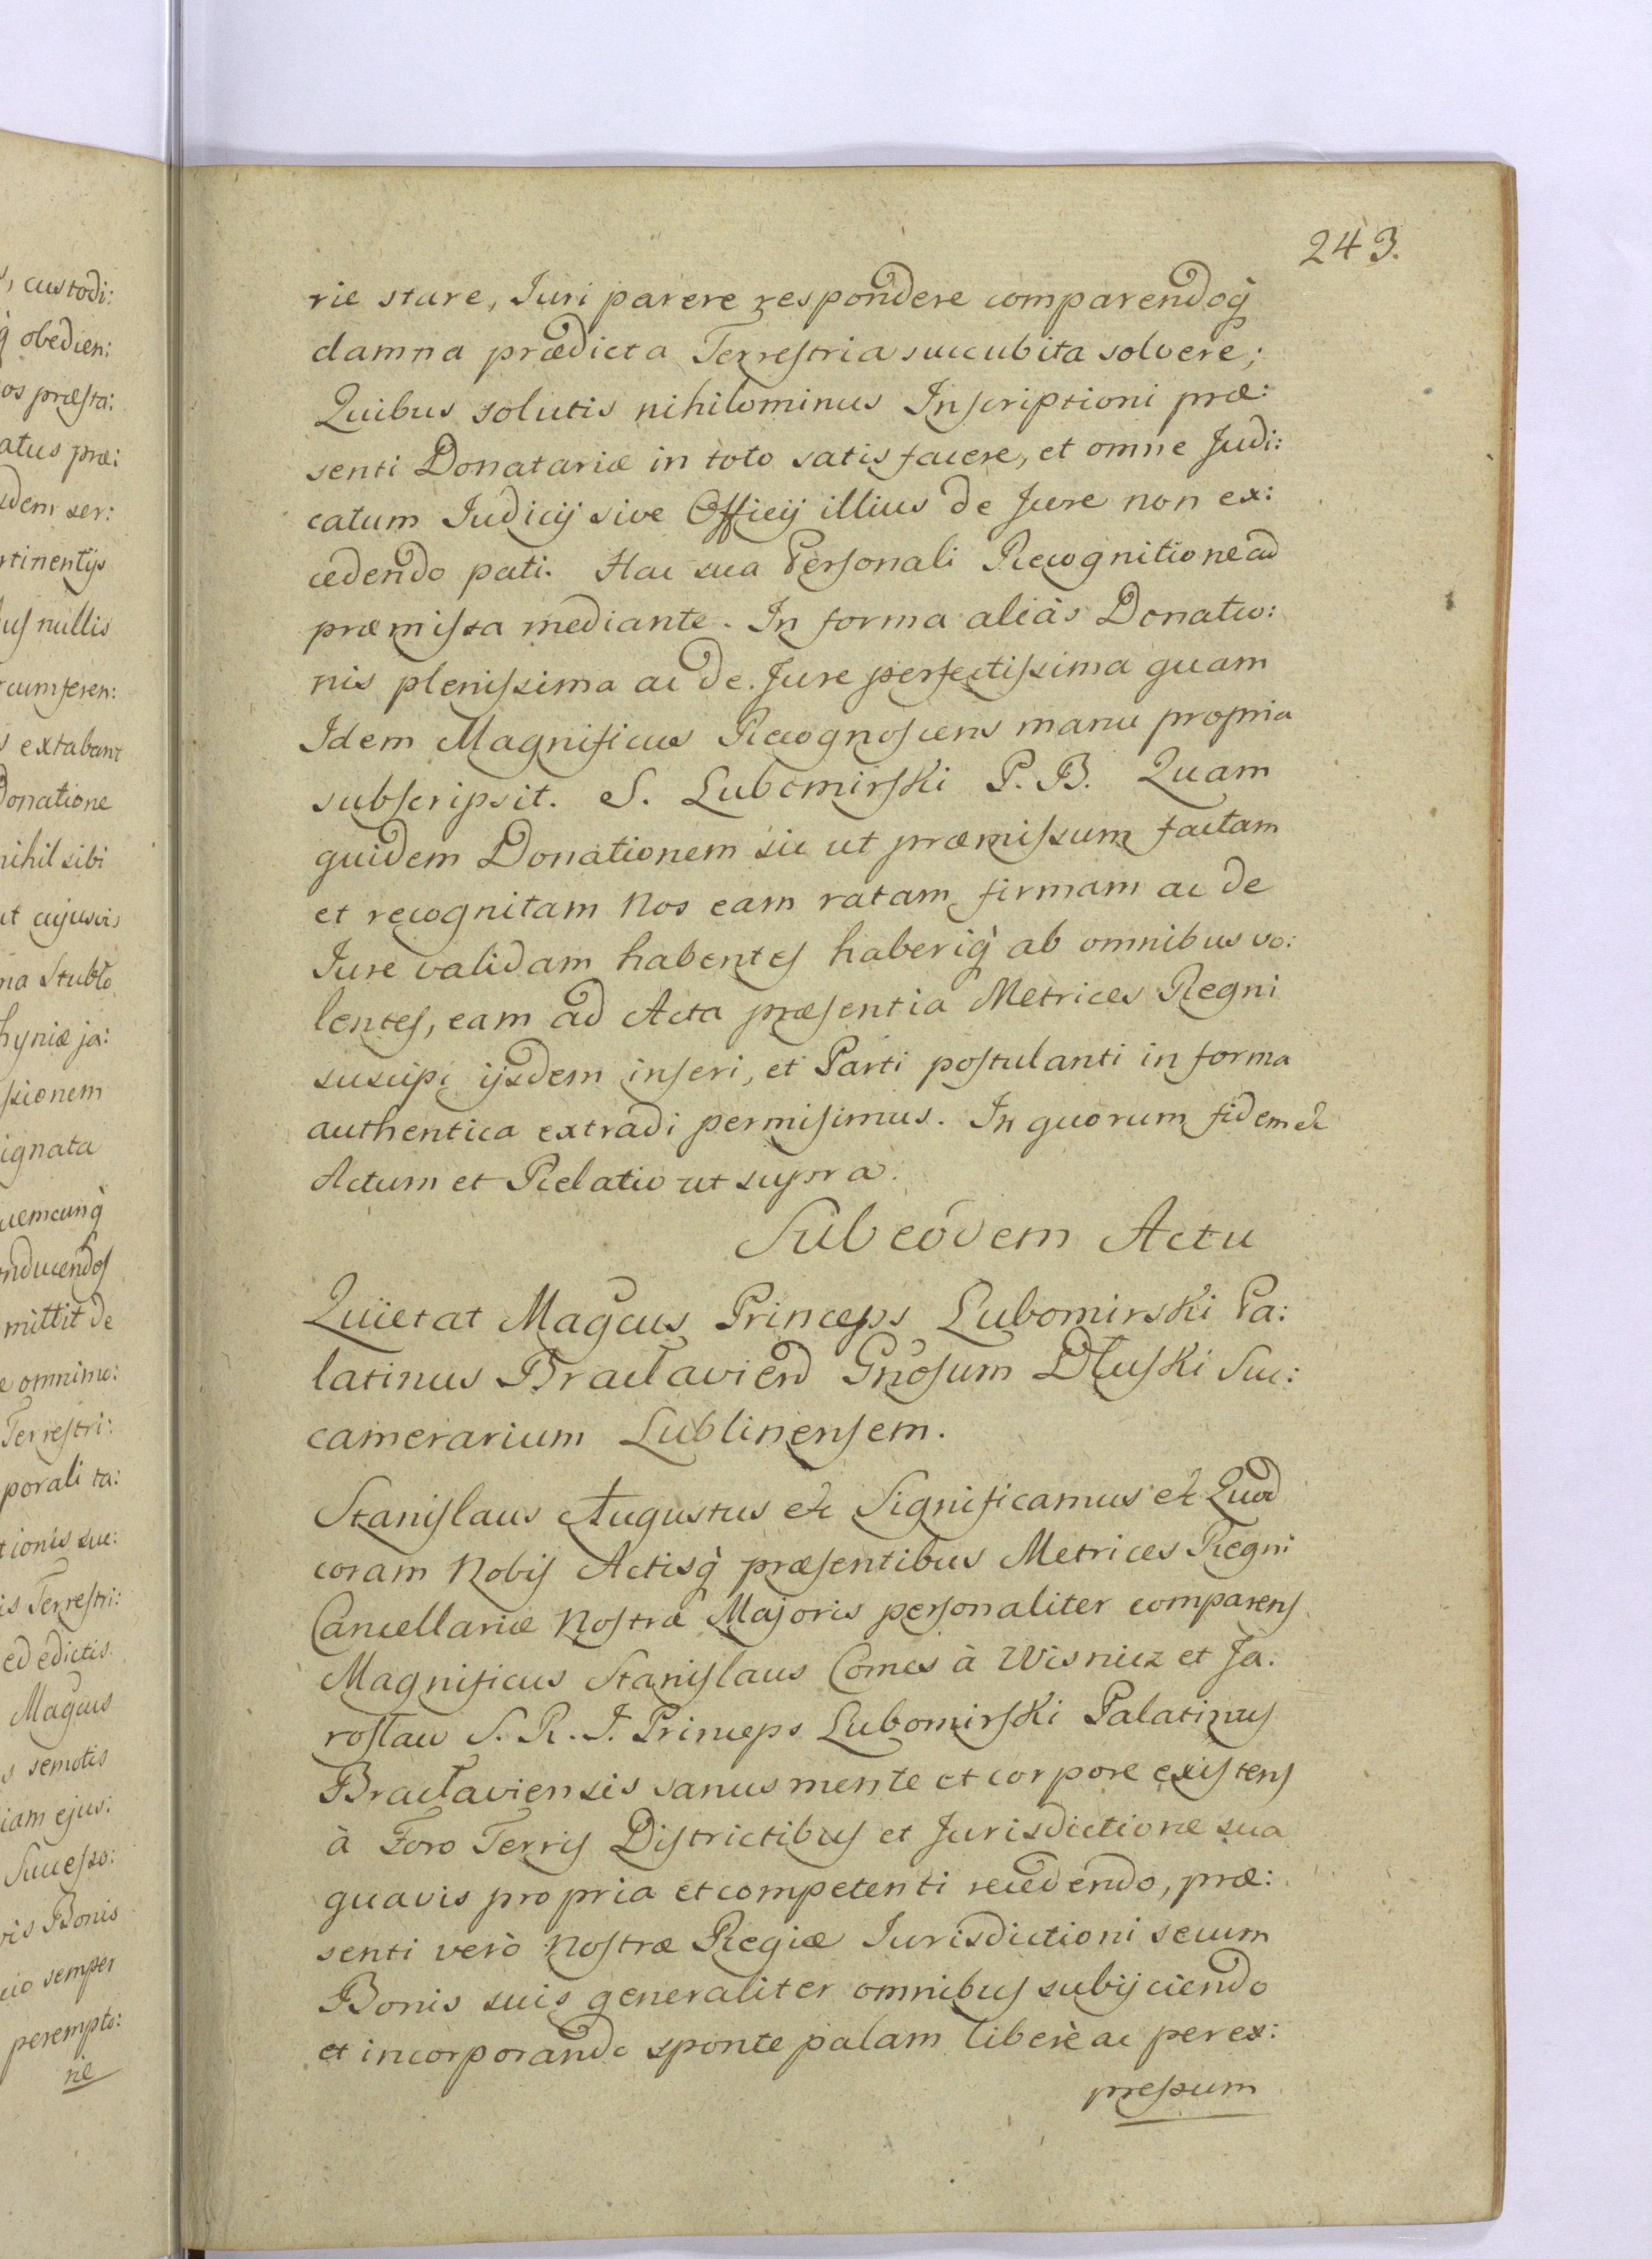 243.
rie stare, Iuri parere respondere comparendoq̀
damna prædicta Terrestria succubita solvere;
Quibus solutis nihilominus Inscriptioni præ:
senti Donatariæ in toto satisfacere, et omne Judi:
catum Iudicij sive Officij illius de Jure non ex:
cedendo pati. Hac sua Personali Recognitione ad
præmissa mediante. In forma aliàs Donatio:
nis plenissima ac de Jure perfectissima quam
Idem Magnificus Recognoscens manu propria
subscripsit. S. Lubomirski P. B. Quam
quidem Donationem sic ut præmissum factam
et recognitam Nos eam ratam firmam ac de
Iure validam habentes haberiq̀ ab omnibus vo:
lentes, eam ad Acta præsentia Metrices Regni
suscipi ijsdem inseri, et Parti postulanti in forma
authentica extradi permisimus. In quorum fidem &c
Actum et Relatio ut supra.
Sub eodem Actu
Quietat Magcus Princeps Lubomirski Pa:
latinus Braclavien Gnosum Dłuski Suc:
camerarium Lublinensem.
Stanislaus Augustus &c Significamus &c Quod
coram Nobis Actisq̀ præsentibus Metrices Regni
Cancellariæ Nostræ Majoris personaliter comparens
Magnificus Stanislaus Comes à Wisnicz et Ja:
rosław S. R. J. Princeps Lubomirski Palatinus
Bracłaviensis sanus mente et corpore existens
à Foro Terris Districtibus et Jurisdictione sua
quavis propria et competenti recedendo, præ:
senti verò Nostræ Regiæ Iurisdictioni secum
Bonis suis generaliter omnibus subijciendo
et incorporando sponte palam liberè ac per ex:
pressum
custodi:
q̀ obedien:
os præsta:
atus præ:
dem ser:
rtinentijs
us nullis
cumferen:
extabant
Donatione
nihil sibi
ut cujusvis
na Stubło
hyniæ ja:
ssionem
ignata
uemcunq̀
nducendos
mittit de
e omnimo:
Terrestri:
porali ta:
tionis suc:
is Terrestri:
ed edictis
Magcus
s semotis
iam ejus:
Successo:
vis Bonis
cio semper
perempto:
rie